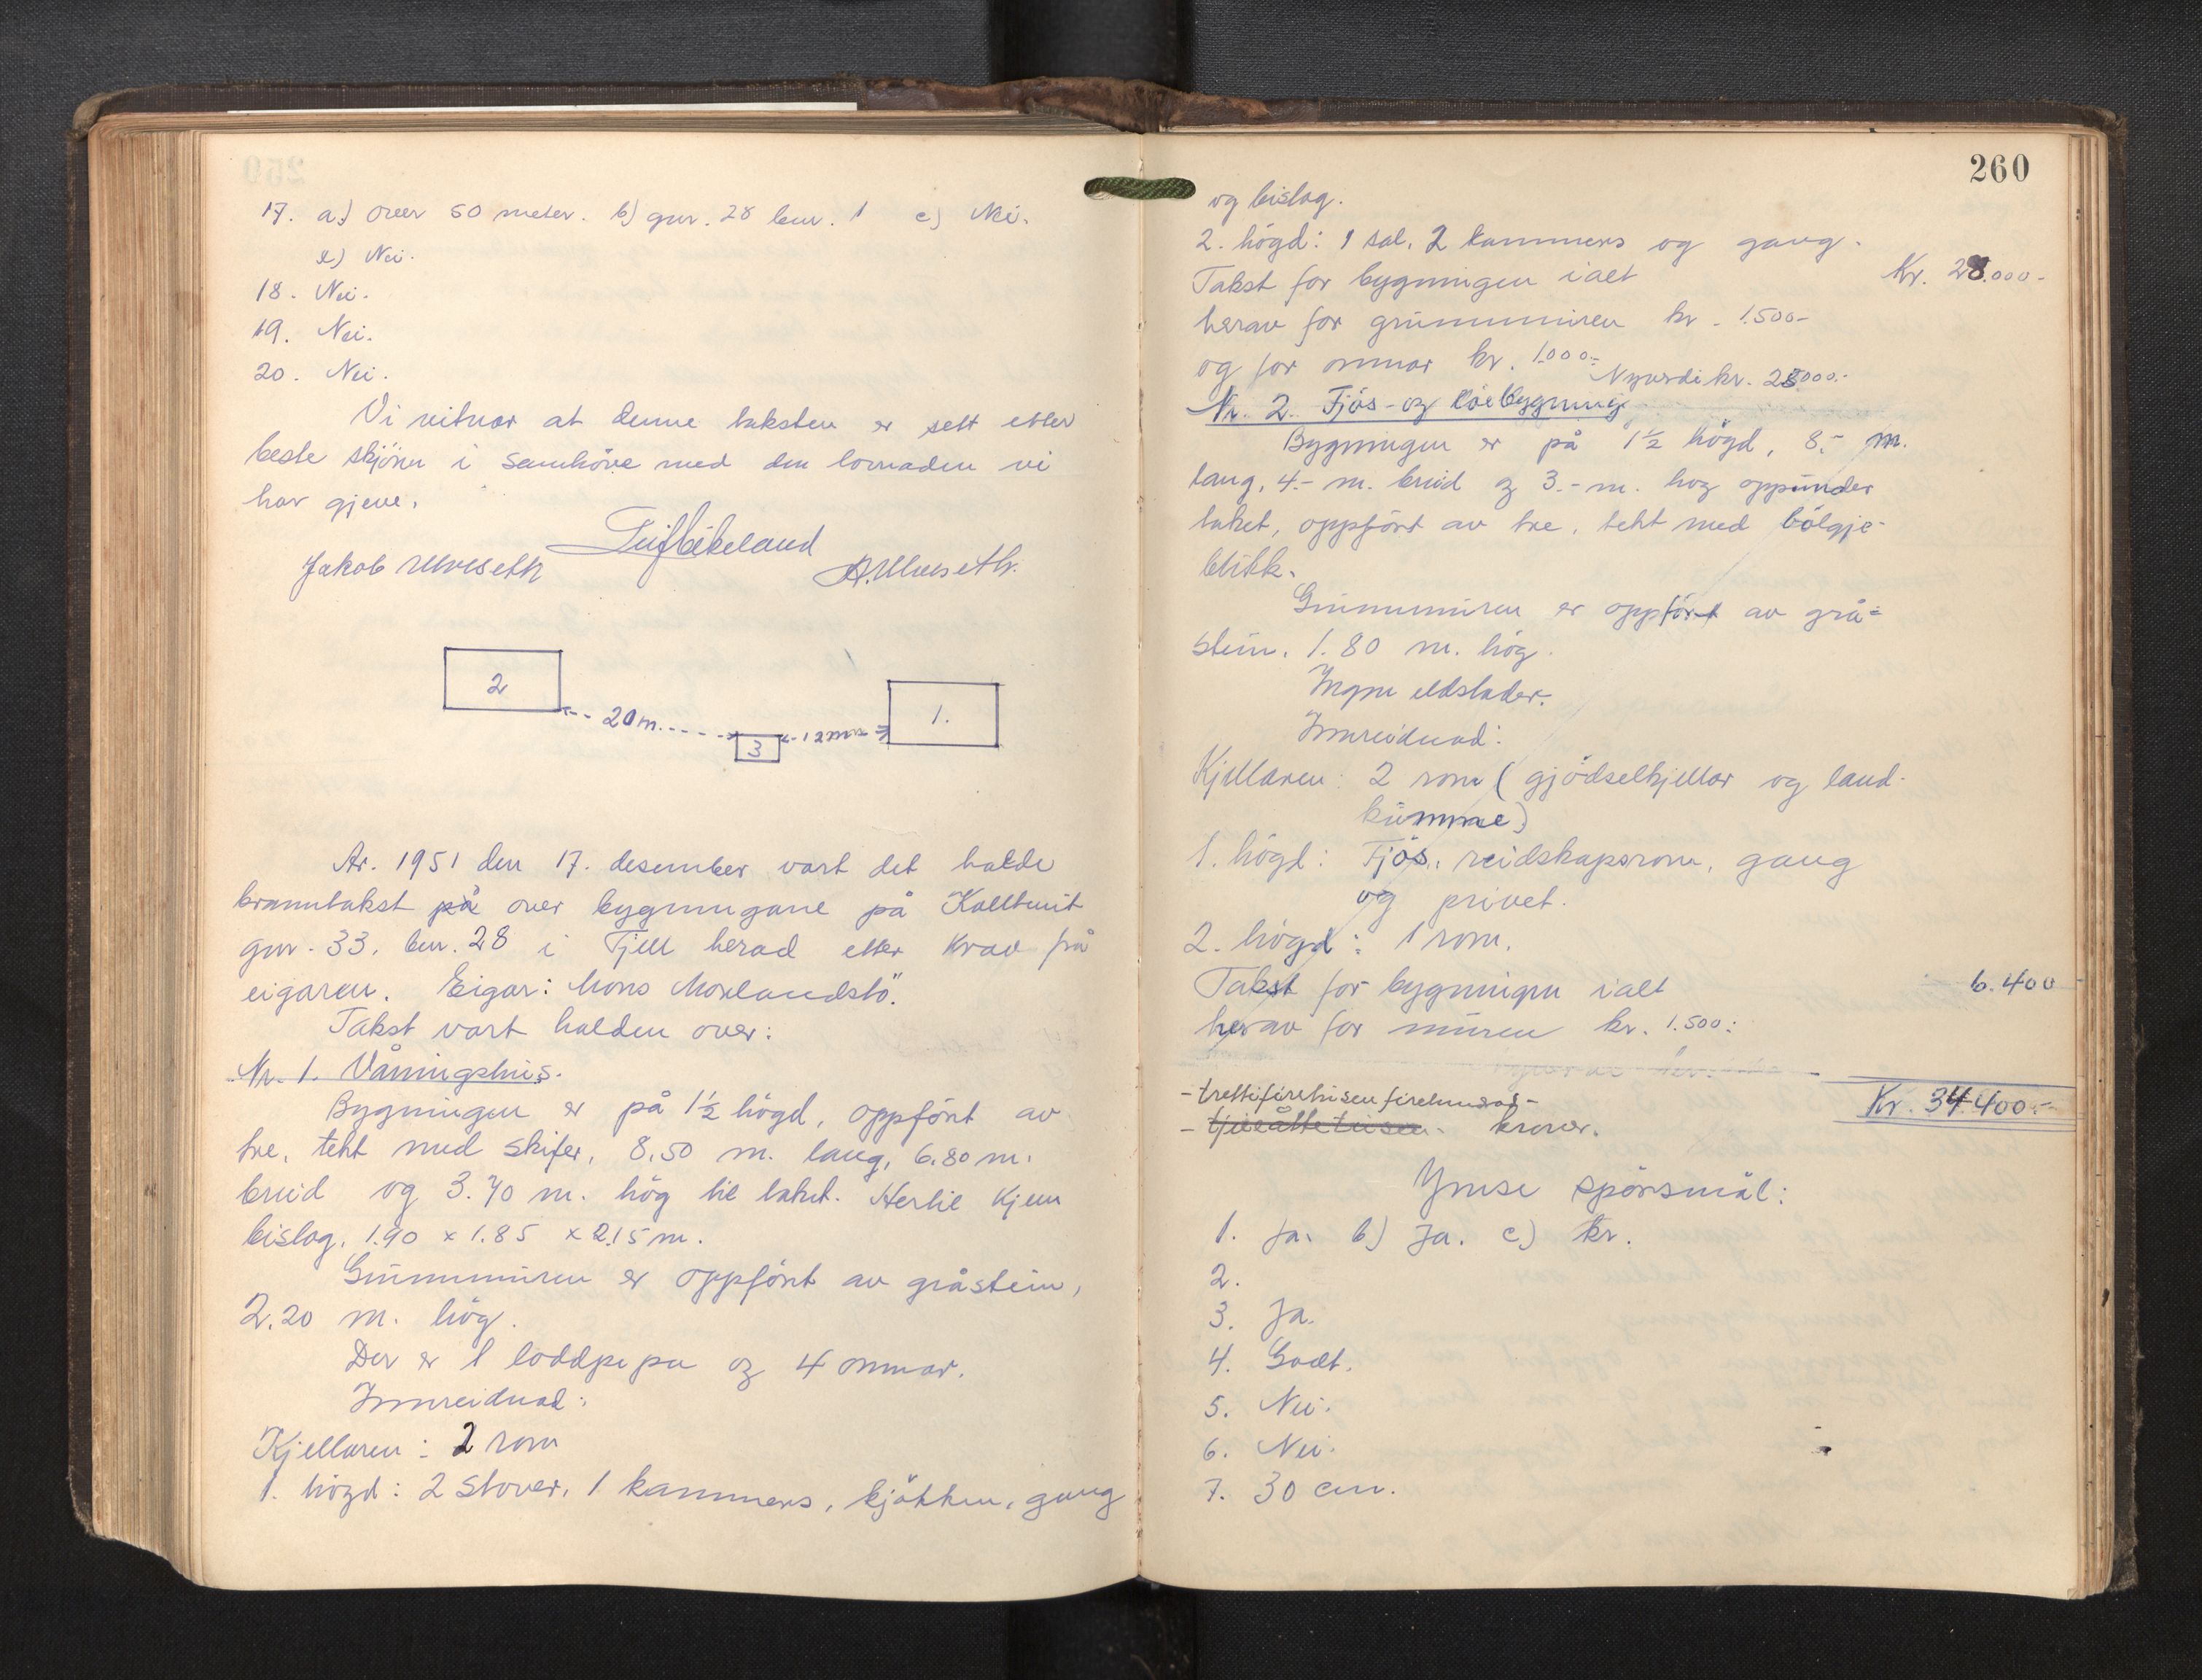 17. a.) over 50 meter. b) gnr. 28 bnr. 1 c) Nei.
d) Nei.
18. Nei.
19. Nei.
20. Nei.
Vi vitnar at denne taksten er sett etter
beste skjönn i samhöve med den lovnaden vi
har gjeve.
Jakob Ulveseth
2
20 m.
3
12 m
1.
År. 1951 den 17. desember vart det halde
branntakst på over bygningane på Kalltveit
gnr. 33, bnr. 28 i Fjell herad etter krav frå
eigaren. Eigar: Mons Morlandstö.
Takst vart halden over:
Nr. 1. Våningshus.
Bygningen er på 1½ högd, oppfört av
tre, tekt med skifer, 8.50 m. lang, 6.80 m.
breid og 3.70 m. hög til taket. Hertil kjem
bislag, 1.90 x 1.85 x 2.15 m.
Grunnmuren er oppfört av gråstein,
2.20 m. hög.
Der er 1 loddpipa og 4 omnar.
Innreidnad:
Kjellaren: 2 rom
1. högd: 2 stover, 1 kammers, kjökken, gang
260
og bislag.
2. högd: 1 sal, 2 kammers og gang.
Takst for bygningen ialt Kr. 28.000-
herav for grunnmuren kr. 1.500-
og for omnar kr. 1.000:-
Nyverdi kr. 28000.-
Nr. 2. Fjös- og löebygning
Bygningen er på 1½ högd, 8.- m.
lang, 4.- m. breid og 3.- m. hog oppunder
taket, oppfört av tre, tekt med bölgje-
blikk.
Grunnmuren er oppfört av grå=
stein, 1.80 m. hög.
Ingen eldstader.
Innreidnad:
Kjellaren: 2 rom (gjödselkjellar og land-
kumme)
1. högd: Fjös, reidskapsrom, gang
og privet.
2. högd: 1 rom.
Takst for bygningen ialt 6.400
herav for muren kr. 1.500:
-trettifiretusenfirehundre-
Kr. 34.400.-
- tjueåttetusen - kroner.
Ymse spörsmål:
1. Ja. b) Ja. c) kr.
2.
3. Ja.
4. Godt.
5. Nei.
6. Nei.
7. 30 cm.